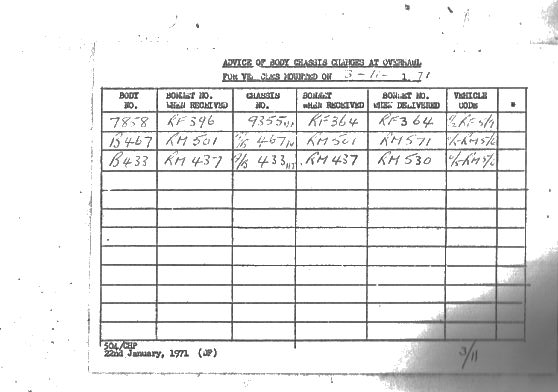 ADVICE OF BODY CHASSIS CHANGES AT OVERHAUL
FOR VEHICLES MOUNTED ON 3-11-1971
BODY NO. BONNET NO. WHEN RECEIVED CHASSIS NO. BONNET WHEN RECEIVED BONNET NO. WHEN DELIVERED VEHICLE CODE *
7858 RF396 9355 RF364 RF364
B467 RM501 467 RM501 RM571
B433 RM437 433 RM437 RM530
504/CHP
22nd January, 1971 (JP)
3/11